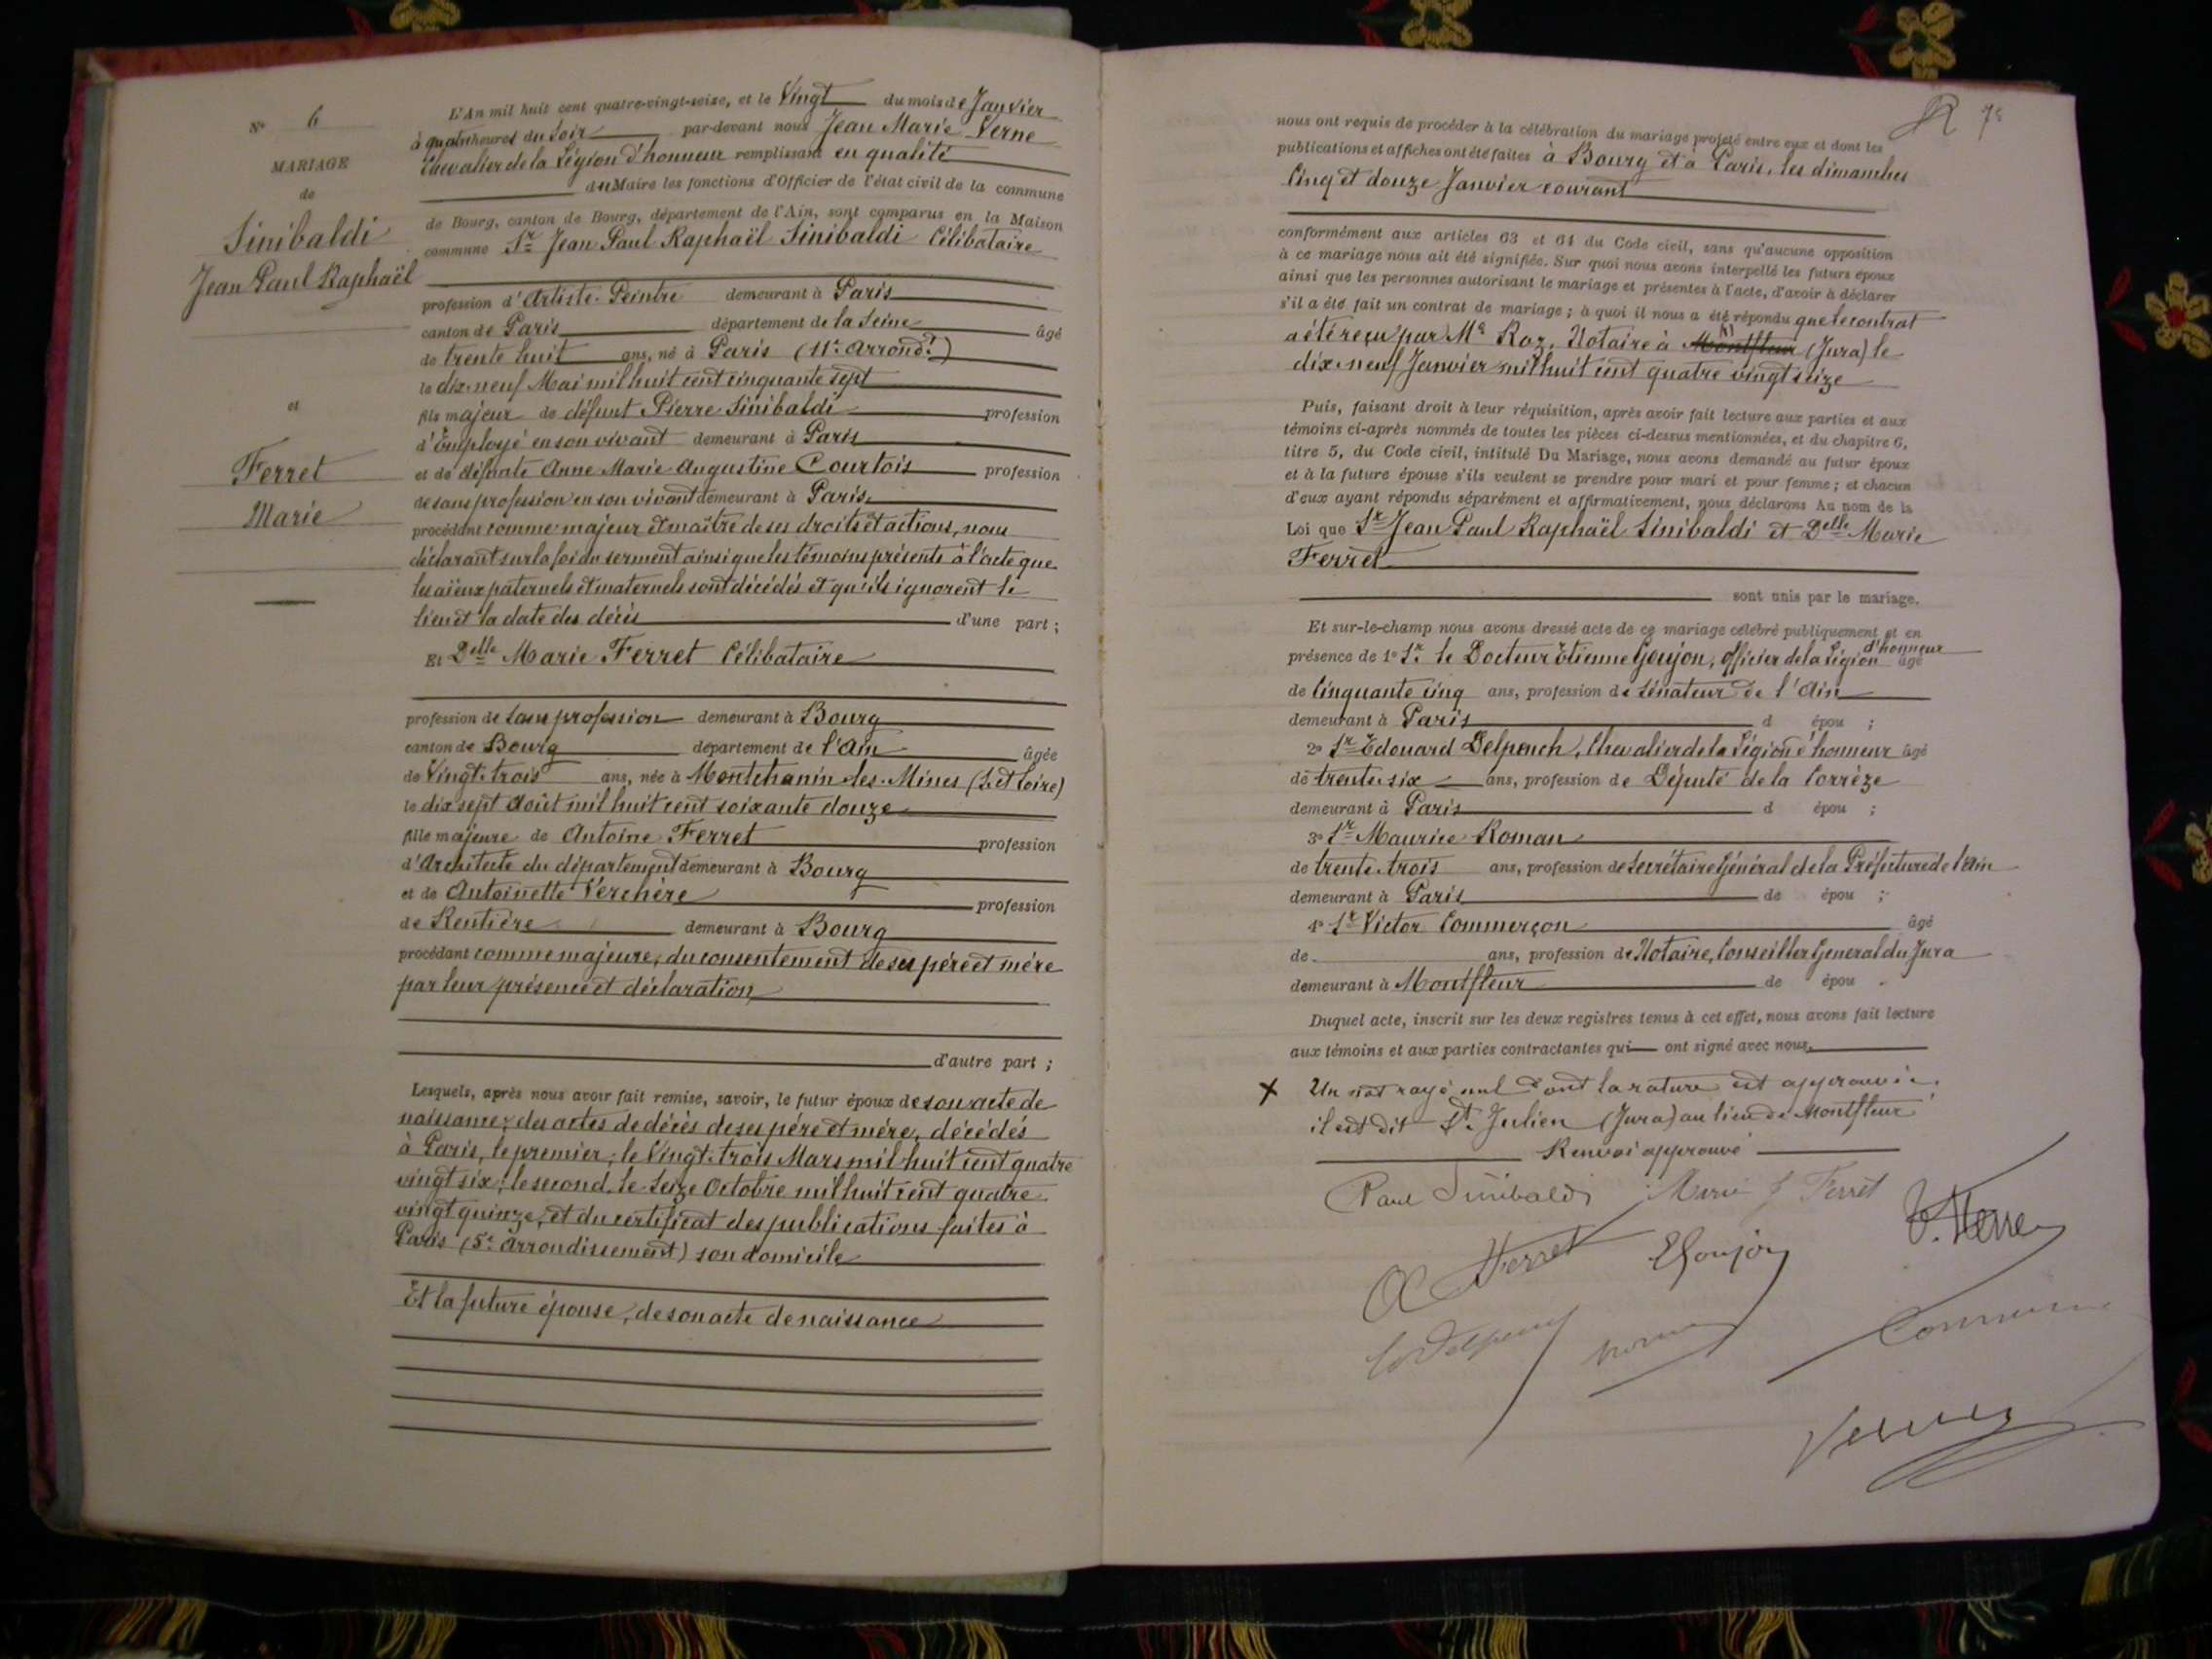 N° 6
MARIAGE
de
Sinibaldi
Jean Paul Raphaël
et
Ferret
Marie
L'An mil huit cent quatre-vingt-seize, et le Vingt du mois de Janvier
à quatre heures du Soir par-devant nous Jean Marie Verne
Chevalier de la Légion d'honneur remplissant en qualité
du Maire les fonctions d'Officier de l'état civil de la commune
de Bourg, canton de Bourg, département de l'Ain, sont comparus en la Maison
commune Sr Jean Paul Raphaël Sinibaldi Célibataire
profession d'Artiste-Peintre demeurant à Paris
canton de Paris département de la Seine âgé
de trente huit ans, né à Paris (11e Arrondt)
le dix-neuf Mai mil huit cent cinquante sept
fils majeur de défunt Pierre Sinibaldi profession
d'Employé en son vivant demeurant à Paris
et de défunte Anne Marie Augustine Courtois profession
de sans profession en son vivant demeurant à Paris
procédant comme majeur et maître de ses droits et actions, nous
déclarant sur la foi du serment ainsi que les témoins présents à l'acte que
les aïeux paternels et maternels sont décédés et qu'ils ignorent le
lieu et la date des décès d'une part ;
Et Delle Marie Ferret Célibataire
profession de Sans profession demeurant à Bourg
canton de Bourg département de l'Ain âgée
de Vingt-trois ans, née à Montchanin-les-Mines (S. et Loire)
le dix sept Août mil huit cent soixante douze
fille majeure de Antoine Ferret profession
d'Architecte du département demeurant à Bourg
et de Antoinette Verchère profession
de Rentière demeurant à Bourg
procédant comme majeure, du consentement de ses père et mère
par leur présence et déclaration
d'autre part ;
Lesquels, après nous avoir fait remise, savoir, le futur époux de son acte de
naissance; des actes de décès de ses père et mère, décédés
à Paris, le premier, le Vingt-trois Mars mil huit cent quatre
vingt six; le second, le Seize Octobre mil huit cent quatre
vingt quinze; et du certificat des publications faites à
Paris (5e Arrondissement) son domicile
Et la future épouse, de son acte de naissance
nous ont requis de procéder à la célébration du mariage projeté entre eux et dont les
publications et affiches ont été faites à Bourg et à Paris, les dimanches
Cinq et douze Janvier courant
conformément aux articles 63 et 64 du Code civil, sans qu'aucune opposition
à ce mariage nous ait été signifiée. Sur quoi nous avons interpellé les futurs époux
ainsi que les personnes autorisant le mariage et présentes à l'acte, d'avoir à déclarer
s'il a été fait un contrat de mariage ; à quoi il nous a été répondu que le contrat
a été reçu par Me Roz, Notaire à Montfleur (Jura) le
dix-neuf Janvier mil huit cent quatre vingt seize
Puis, faisant droit à leur réquisition, après avoir fait lecture aux parties et aux
témoins ci-après nommés de toutes les pièces ci-dessus mentionnées, et du chapitre 6,
titre 5, du Code civil, intitulé Du Mariage, nous avons demandé au futur époux
et à la future épouse s'ils veulent se prendre pour mari et pour femme ; et chacun
d'eux ayant répondu séparément et affirmativement, nous déclarons Au nom de la
Loi que Sr Jean Paul Raphaël Sinibaldi et Delle Marie
Ferret
sont unis par le mariage.
Et sur-le-champ nous avons dressé acte de ce mariage célébré publiquement et en
présence de 1° Sr le Docteur Etienne Goujon, Officier de la Légion d'honneur âgé
de Cinquante cinq ans, profession de Sénateur de l'Ain
demeurant à Paris d épou ;
2° Sr Edouard Delpeuch, Chevalier de la Légion d'honneur âgé
de trente-six ans, profession de Député de la Corrèze
demeurant à Paris d épou ;
3° Sr Maurice Roman
de trente-trois ans, profession de Secrétaire Général de la Préfecture de l'Ain
demeurant à Paris de épou ;
4° Sr Victor Commerçon âgé
de ans, profession de Notaire, Conseiller General du Jura
demeurant à Montfleur de épou .
Duquel acte, inscrit sur les deux registres tenus à cet effet, nous avons fait lecture
aux témoins et aux parties contractantes qui ont signé avec nous.
X Un mot rayé nul dont la rature est approuvée.
il est dit St. Julien (Jura) au lieu de Montfleur
Renvoi approuvé
Paul Sinibaldi Marie Ferret
A Ferret EGoujon